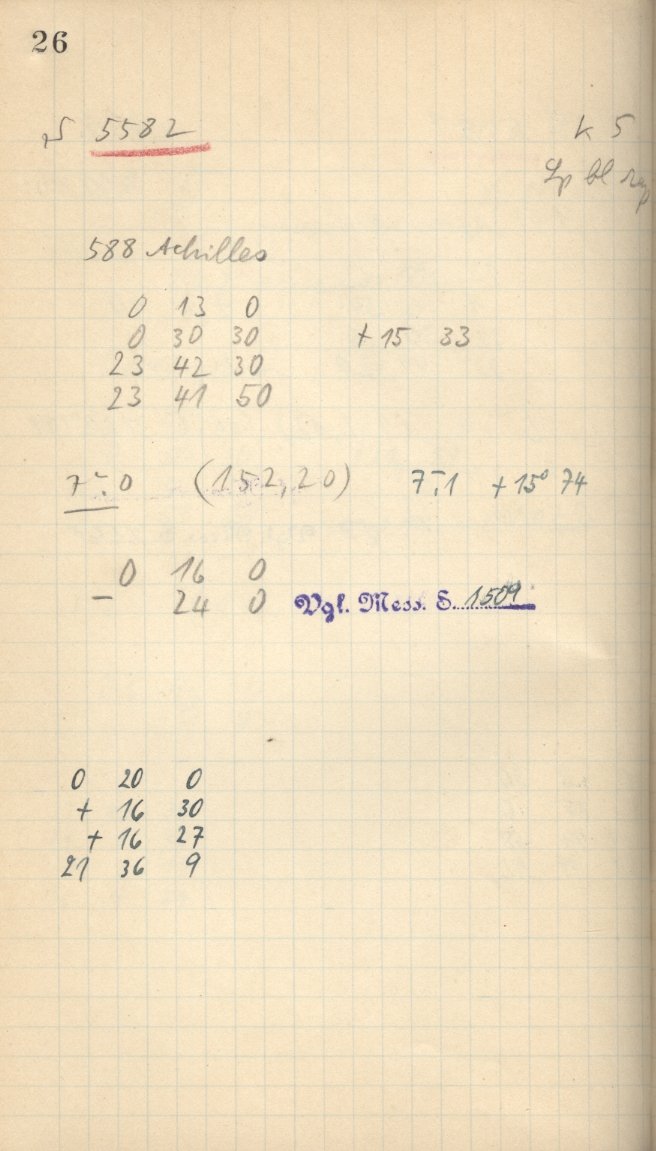 26
5582
K 5
588 Achilles
0 13 0
0 30 30 + 15 33
23 42 30
23 41 50
7m.0 (152,20) 7m.1 + 15° 74
0 16 0
– 24 0 Vgl. Mess. S. 1509
0 20 0
+ 16 30
+ 16 27
21 36 9